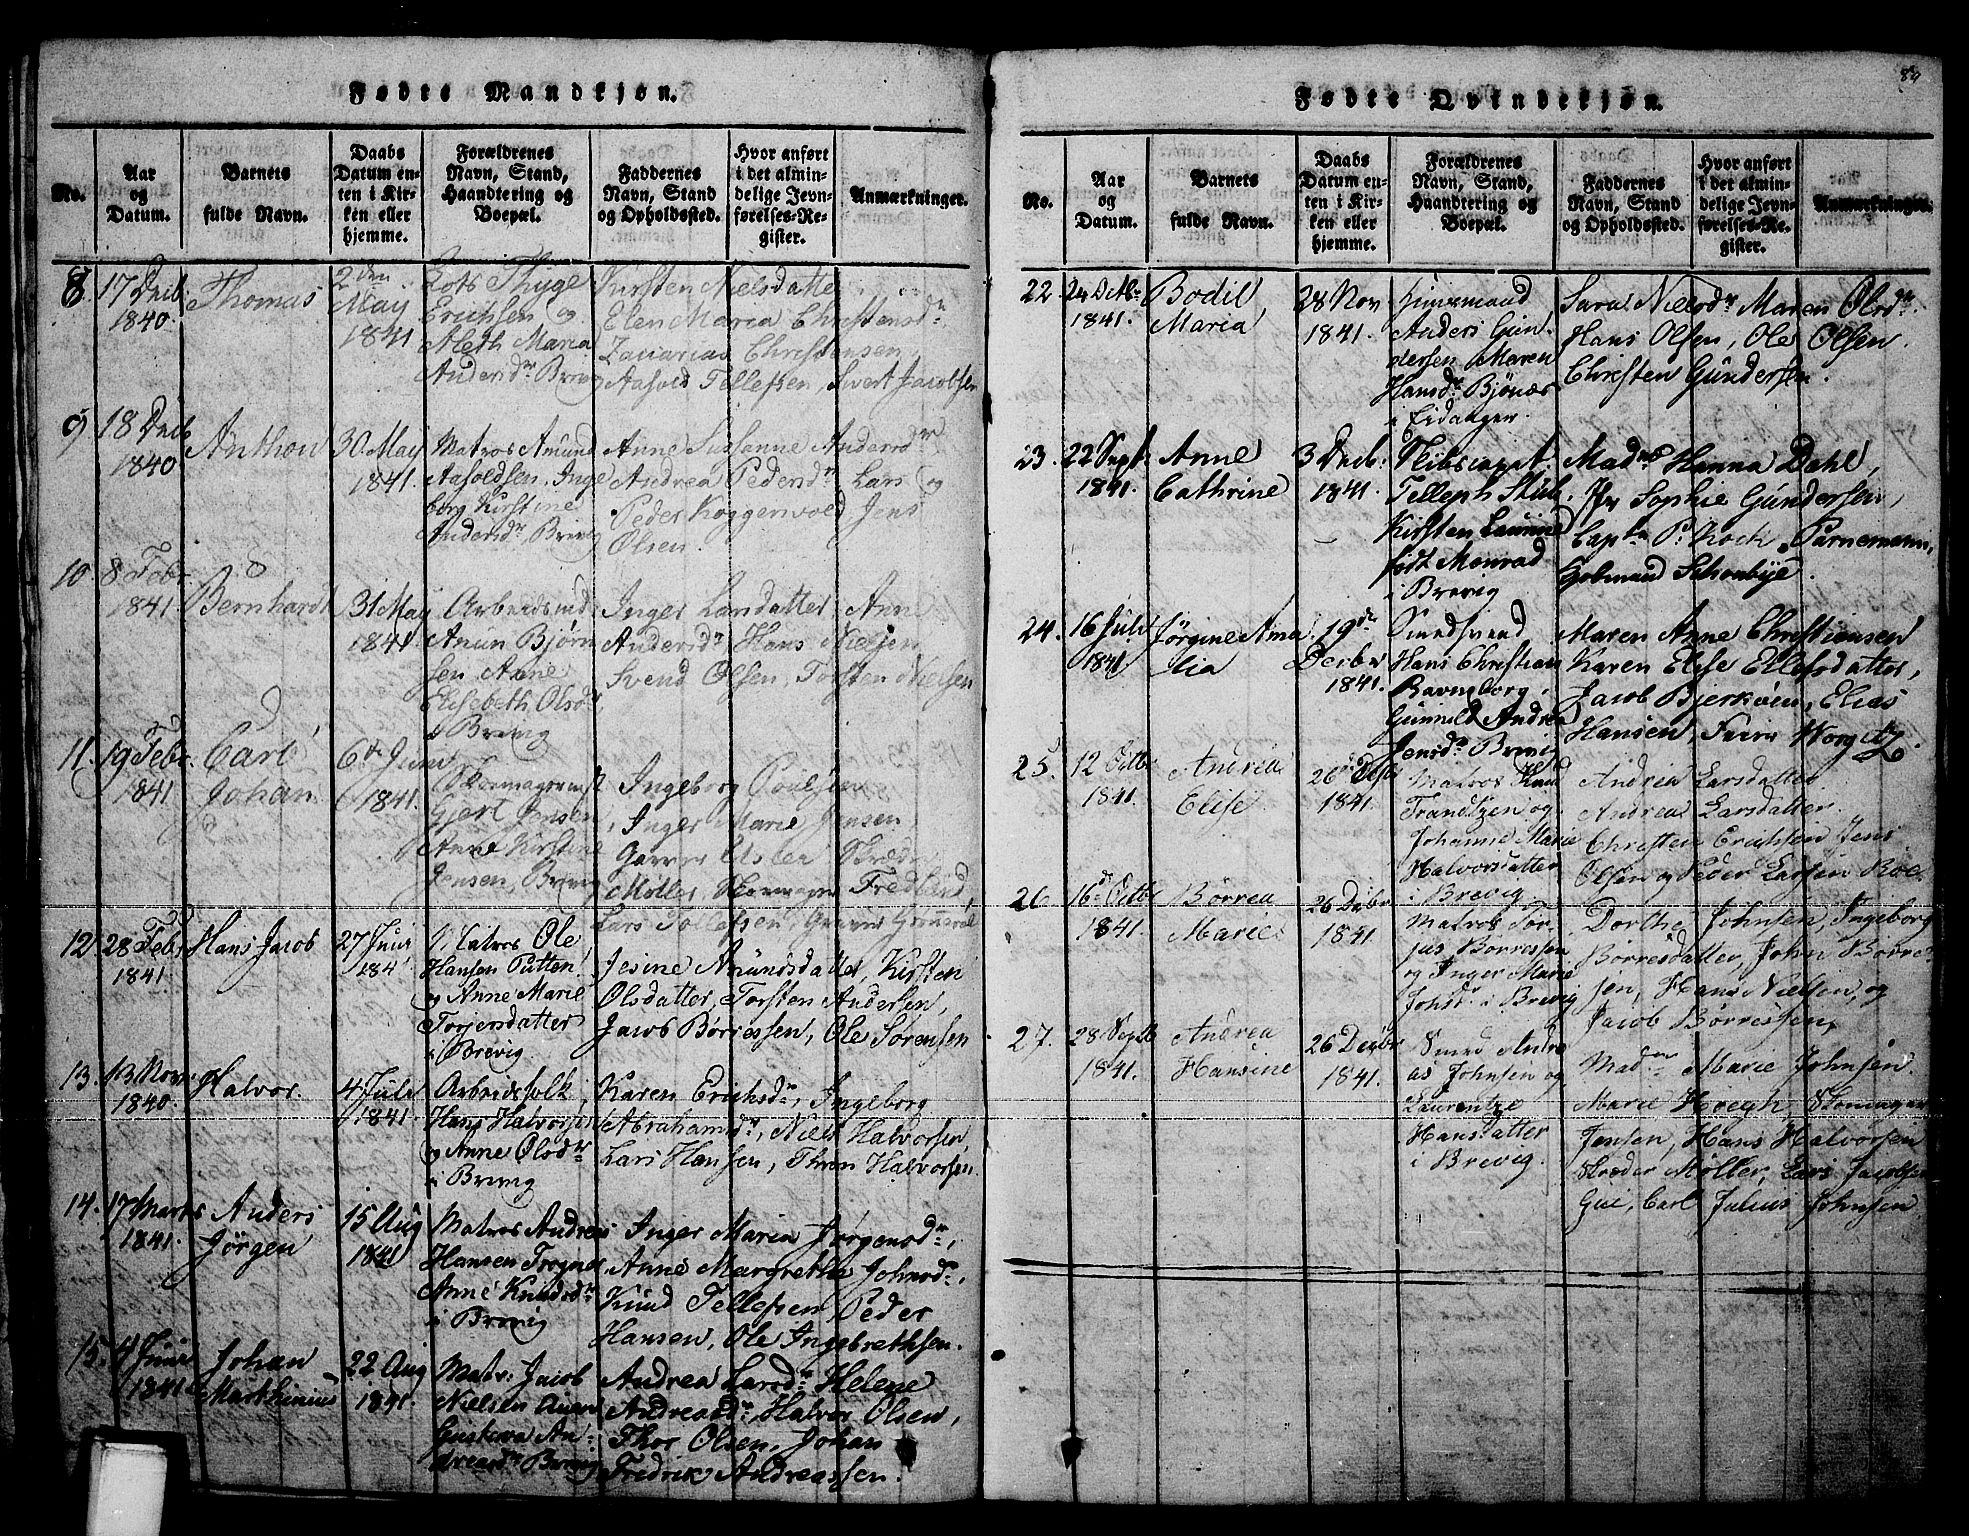 Fødte Mandkjøn.
No.
Aar
og
Datum.
Barnets
fulde Navn.
Daabs
Datum en-
ten i Kir-
ken eller
hjemme.
Forældrenes
Navn, Stand,
Haandtering og
Boepæl.
Faddernes
Navn, Stand
og Opholdssted.
Hvor anført
i det almin-
delige Jevn-
førelses-Re-
gister.
Anmærkninger.
8. 17 Decb.
1840.
Thomas
2den
May
1841
Lots Thyge
Erichsen og
Aleth Maria
Andersdr Brevig
Kirsten Nielsdatter
Elen Maria Christensdr
Zacarias Christensen,
Aasold Tellefsen, Sivert Jacobsen
9 18 Decb
1840
Anthon
30 May
1841.
Matros Amund
Aasoldsen, Inge
borg Kirstine
Andersdr, Brevig
Anne Susanne Andersdr
Andrea Pedersdr Lars og
Peder Koggenvold Jens
Olsen.
10 8 Febr
1841.
Bernhardt
31 May
1841
Arbeidsmd
Anun Bjørn
sen Anne
Elisebeth Olsdr
i Brevig
Inger Larsdatter Anne
Andersdr Hans Nielsen
Svend Olsen, Torsten Nielsen
11. 19 Febr.
1841
Carl
Johan
6te Juni
1841.
Skomagermst
Gjert Jensen,
Anne Kirstine
Jensen, Brevig
Ingeborg Poulsen
Inger Marie Jensen
Garver Esler Skreder
Møller, Skomager Fredlund,
Lars Tollefsen, Garver Grønvold
12. 28 Febr
1841.
Hans Jacob
27 Juni
184
Matros Ole
Hansen Putten
og Anne Marie
Torjersdatter
i Brevig
Jesine Amundsdatter, Kirsten
Olsdatter, Torsten Andersen,
Jacob Børresen, Ole Sørensen
13. 13 Novr
1840.
Halvor.
4 Juli
1841.
Arbeidsfolk
Hans Halvorsen
og Anne Olsdr
i Brevig
Karen Erichsdr, Ingeborg
Abrahamsdr, Niels Halvorsen,
Lars Hansen, Thron Halvorsen.
14. 17 Marts
1841.
Anders
Jørgen
15 Aug
1841
Matros Andreas
Hansen Trogne
Anne Knudsdr
i Brevig
Inger Maria Jørgensdr,
Anne Margrethe Johnsdr,
Knud Tellefsen Peder
Hansen, Ole Ingebrethsen.
15. 4 Juni
1841
Johan
Marthinius
22 Aug
1841.
Matr. Jacob
Nielsen
Gustava An-
dreasdr Brevig
Andrea Larsdr Helene
Andreasdr, Halvor Olsen,
Thor Olsen, Johan
Fredrik Andreassen.
89
Fødte Qvindekjøn.
No.
Aar
og
Datum.
Barnets
fulde Navn.
Daabs
Datum en-
ten i Kir-
ken eller
hjemme.
Forældrenes
Navn, Stand,
Haandtering og
Boepæl.
Faddernes
Navn, Stand
og Opholdssted.
Hvor anført
i det almin-
delige Jevn-
førelses-Re-
gister.
Anmærkninger.
22. 24 Octbr
1841.
Bodil
Maria
28 Nov
1841.
Huusmand
Anders Gun
dersen Maren
Hansdr Bjønæs
i Eidanger.
Sara Nielsdr Maren Olsdr.
Hans Olsen, Ole Olsen.
Christen Gundersen.
23. 22 Sept
1841.
Anne
Cathrine
3 Decb:
1841.
Skibscapt
Telleph Stub.
Kirsten Laurine
født Monrad
i Brevig
Madme Hanna Dahl,
Jfr Sophie Gundersen,
Captn P. Kock, Parnemann,
Schonbÿe.
24. 16 Juli
1841.
Jørgine Ama
lia
19de
Decbr
1841.
Smedsvend
Hans Christian
Ravnsborg,
Gunnild Andrea
Jensdr Brevig
Maren Anne Christiansen
Karen Elise Ellefsdatter,
Jacob Bjerkøen, Elias
Hansen, Worgitz.
25. 12 Octbr
1841.
Andrea
Elise.
26 Decb
1841.
Matros Knud
Frandtzen og
Johanne Marie
Halvorsdatter
i Brevig
Andrea Larsdatter
Andrea Larsdatter.
Christen Erichsen, Jens
Olsen og Peder Larsen Roe.
26 16de Octbr
1841.
Børrea
Marie
26 Decbr
1841.
Matros Tor-
jus Børressen
og Inger Marie
Johsdr i Brevig
Dorthe Johnsen, Ingeborg
Børresdatter, John Børre-
sen, Hans Nielsen, og
Jacob Børressen,
27. 28 Septb
1841.
Andrea
Hansine
26 Decbr
1841.
Smed Andre
as Johnsen og
Laurentze
Hansdatter
i Brevig.
Madme Marie Johnsen.
Marie Hoegh, Skomager
Jensen, Hans Halvorsen
Skreder Møller, Lars Jacobsen
Gui, Carl Julius Johnsen